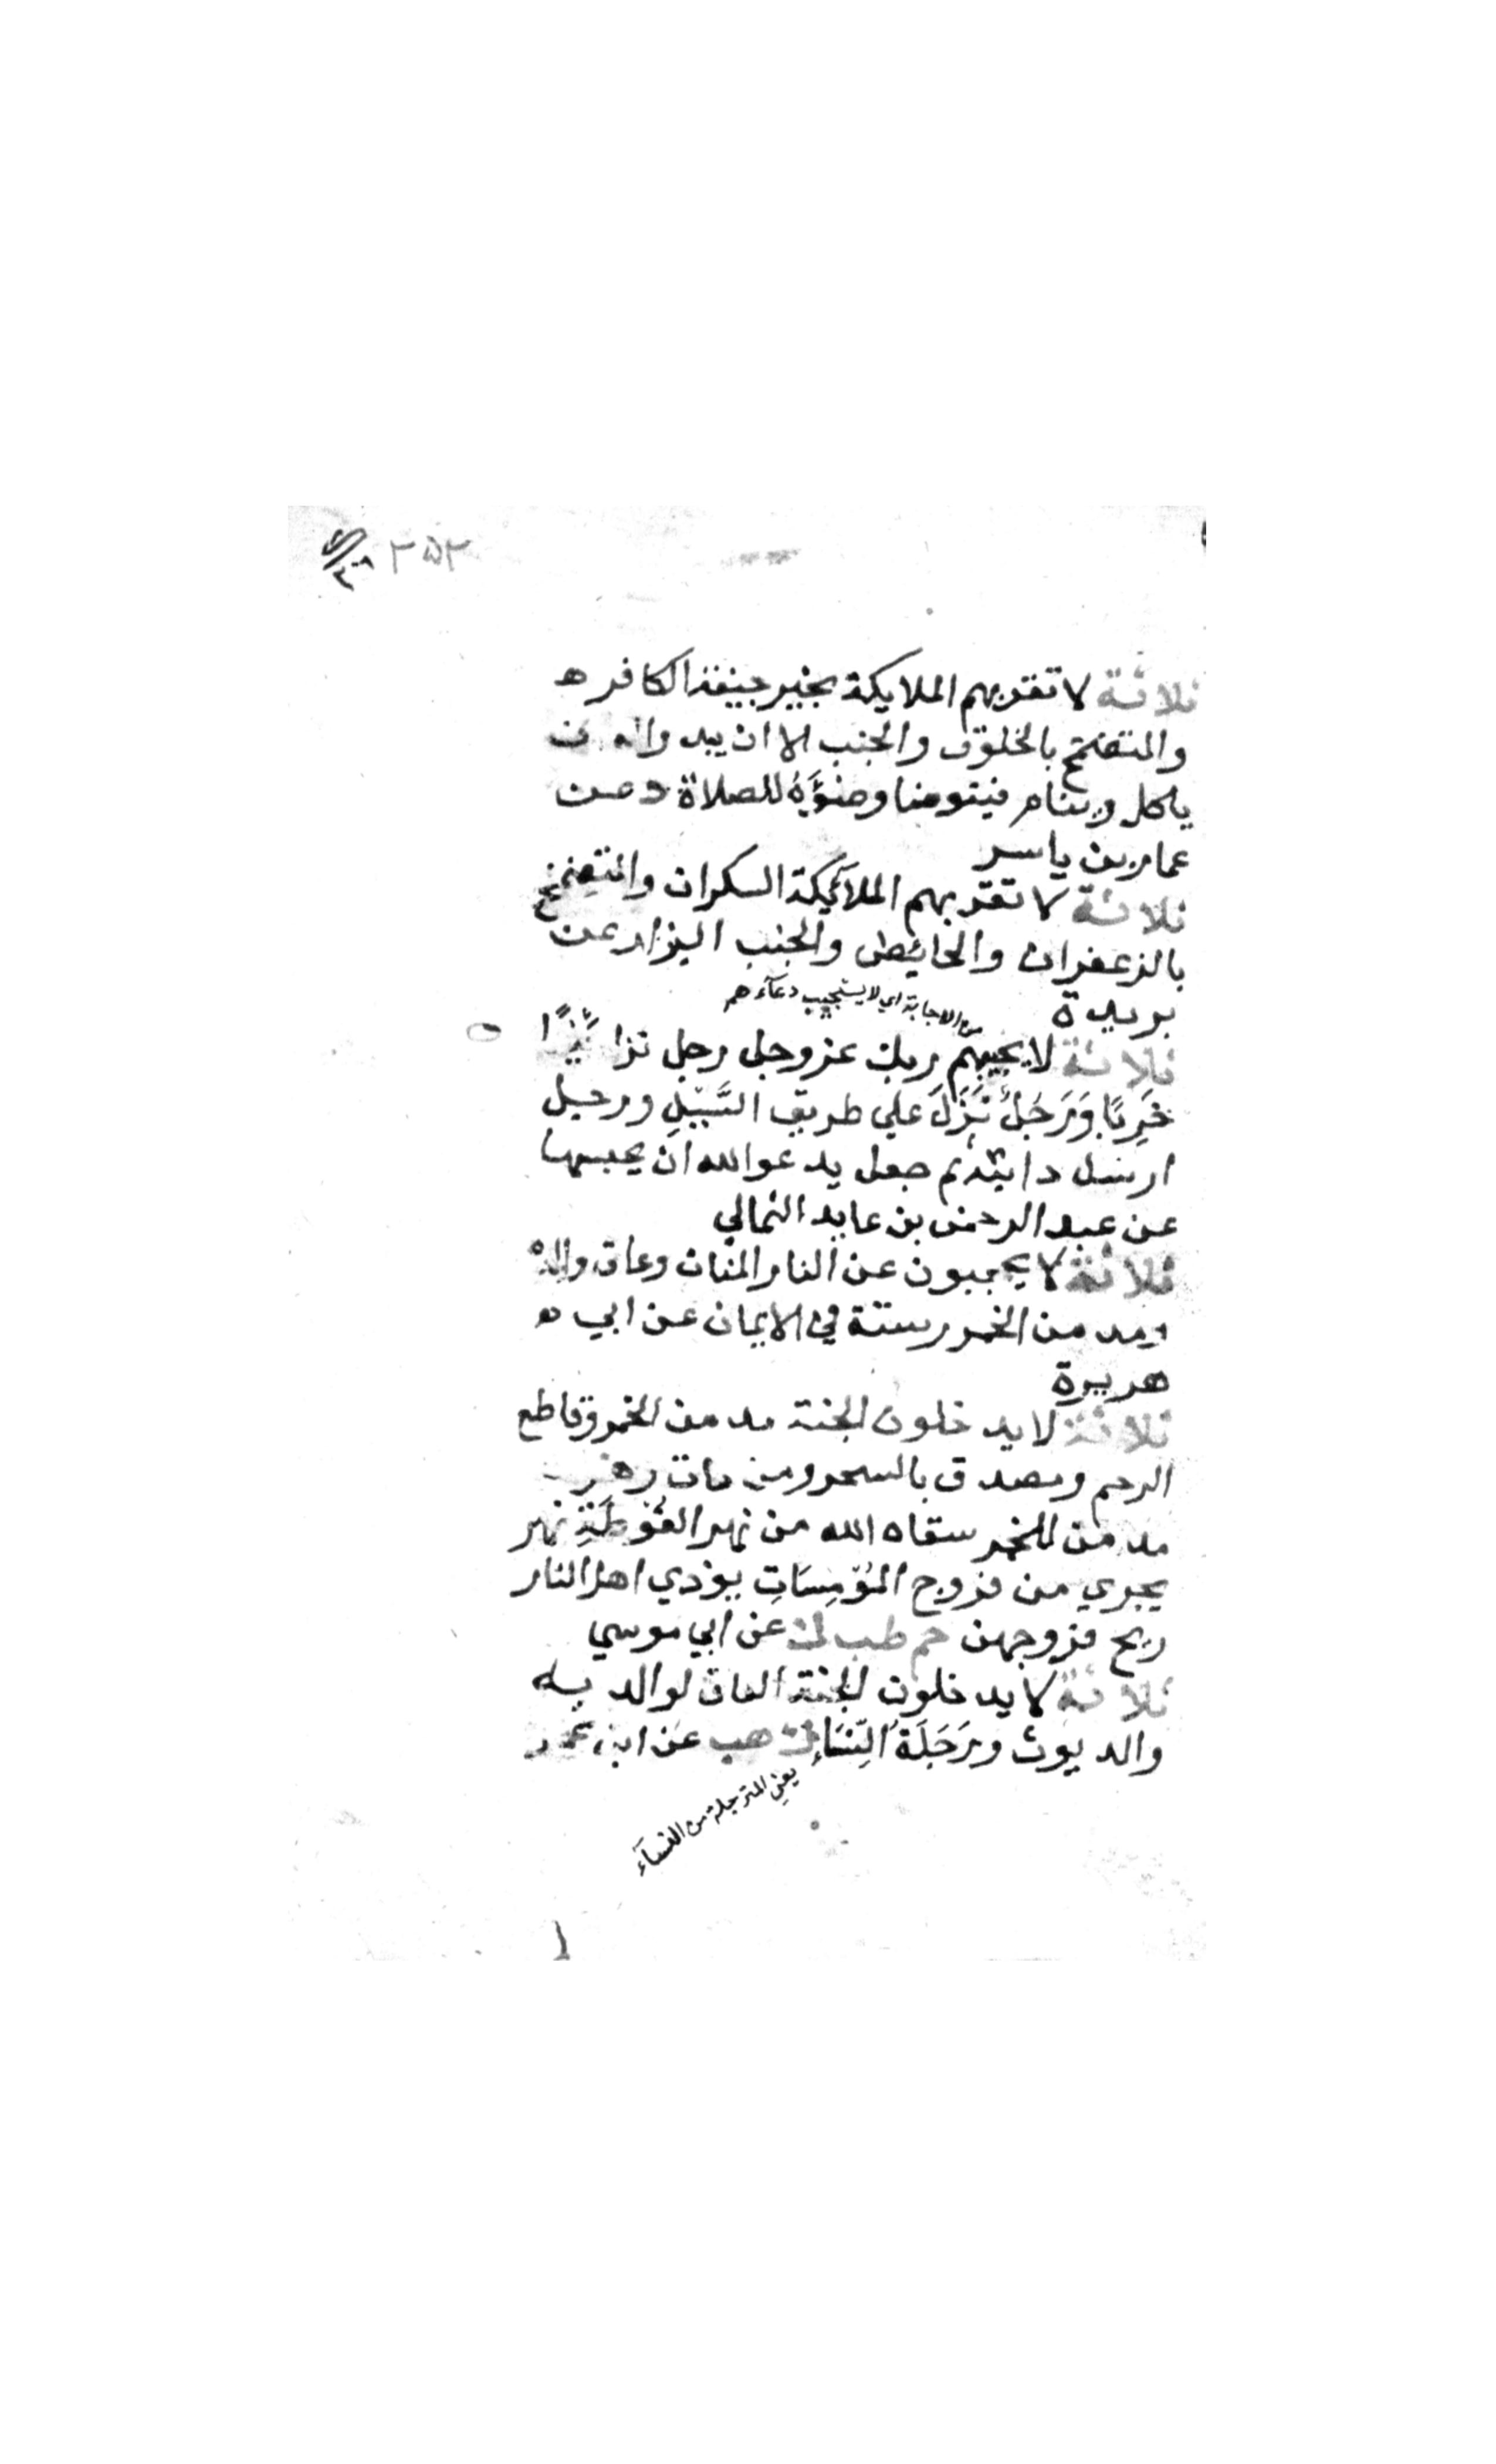 ٢٥٢
ثلاثة لا تقربهم الملايكة بخير جيفة الكافر ه
والمتضمخ بالخلوق والجنب الا ان يبدو
ياكل وينام فيتوضا وضوءه للصلاة د عن
عمار بن ياسر
ثلاثة لا تقربهم الملائيكة السكران والمتضمخ
بالزعفران والحائيض والجنب البزار عن
بريدة
من الاجابة اي لا يستجيب دعآءهم
ثلاثة لا يجيبهم ربك عز وجل رجل نزل بيتًا
خَرِبًا وَرَجُلٌ نَزَلَ علي طريق السَّبِيْلِ ورجل
ارسل دابته ثم جعل يدعو الله ان يحبسها
عن عبد الرحمن بن عايد الثمالي
ثلاثة لا يحجبون عن النار المنان وعاق والده
ومدمن الخمر رستة في الايمان عن ابي ه
هريرة
ثلاثة لا يدخلون الجنة مدمن الخمر وقاطع
الرحم ومصدق بالسحر ومن مات وهو
مدمن للخمر سقاه الله من نهر الغُوْطَةِ نهر
يجري من فروج المُوْمِسَاتِ يؤذي اهل النار
ريح فروجهن حم طب ك عن ابي موسي
ثلاثة لا يدخلون الجنة العاق لوالديه
والديوث ورَجَلَةُ النِّسَاءِ ك هب عن ابن عمر
يعني المترجلة من النسآء